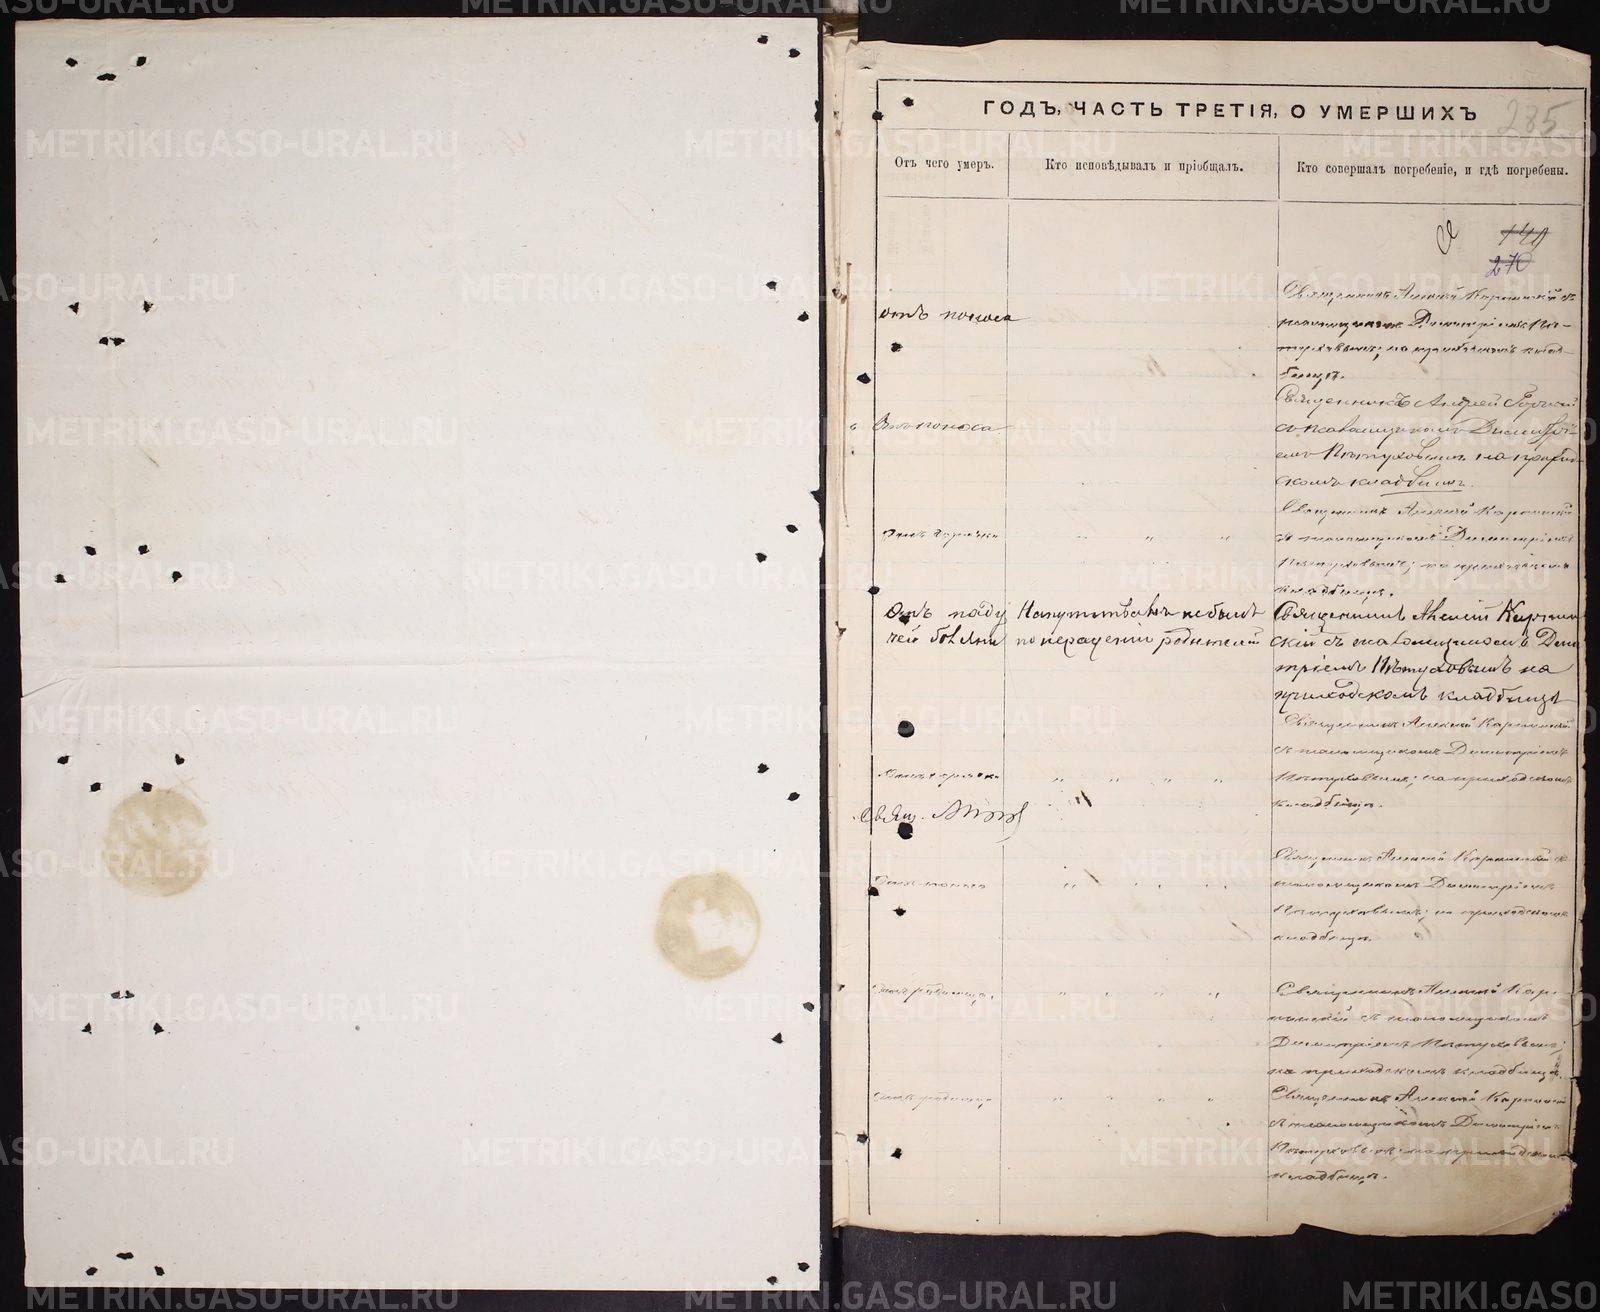 ГОДЪ, ЧАСТЬ ТРЕТІЯ, О УМЕРШИХЪ
285
Отъ чего умеръ.
Кто исповѣдывалъ и пріобщалъ.
Кто совершалъ погребеніе, и гдѣ погребены.
140
270
отъ поноса
Священникъ Алексій
псаломщикомъ Димитріемъ Пѣ-
туховымъ; на приходскомъ клад-
бищѣ.
Отъ поноса
Священникъ Андрей
съ псаломщикомъ Димитрі-
емъ Пѣтуховымъ на приход-
скомъ кладбищѣ.
Священникъ Алексій
съ псаломщикомъ Димитріемъ
Пѣтуховымъ; на приходскомъ
кладбищѣ.
Отъ паду
чей болѣзни
Напутствованъ не былъ
по нерадѣнію родителей
Священникъ Алексій
скій съ псаломщикомъ Дим
тріемъ Пѣтуховымъ на
приходскомъ кладбищѣ
Священникъ Алексій
съ псаломщикомъ Димитріемъ
Пѣтуховымъ; на приходскомъ
кладбищѣ.
Свящ.
Священникъ Алексій
псаломщикомъ Димитріемъ
Пѣтуховымъ; на приходскомъ
кладбищѣ
Отъ родимца.
Священникъ Алексій
съ псаломщикомъ
Димитріемъ Пѣтуховымъ;
на приходскомъ кладбищѣ.
Отъ родимца
Священникъ Алексій
съ псаломщикомъ Димитріемъ
Пѣтуховымъ; на приходскомъ
кладбищѣ.
METRIKI.GASO-URAL.RU